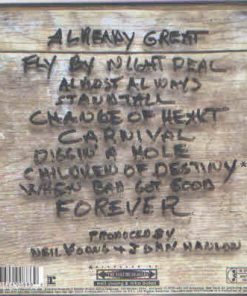 ALREADY GREAT
FLY BY NIGHT DEAL
ALMOST ALWAYS
STAND TALL
CHANGE OF HEART
CARNIVAL
DIGGIN' A HOLE
CHILDREN OF DESTINY*
WHEN BAD GOT GOOD
FOREVER
PRODUCED BY
NEIL YOUNG + JOHN HANLON